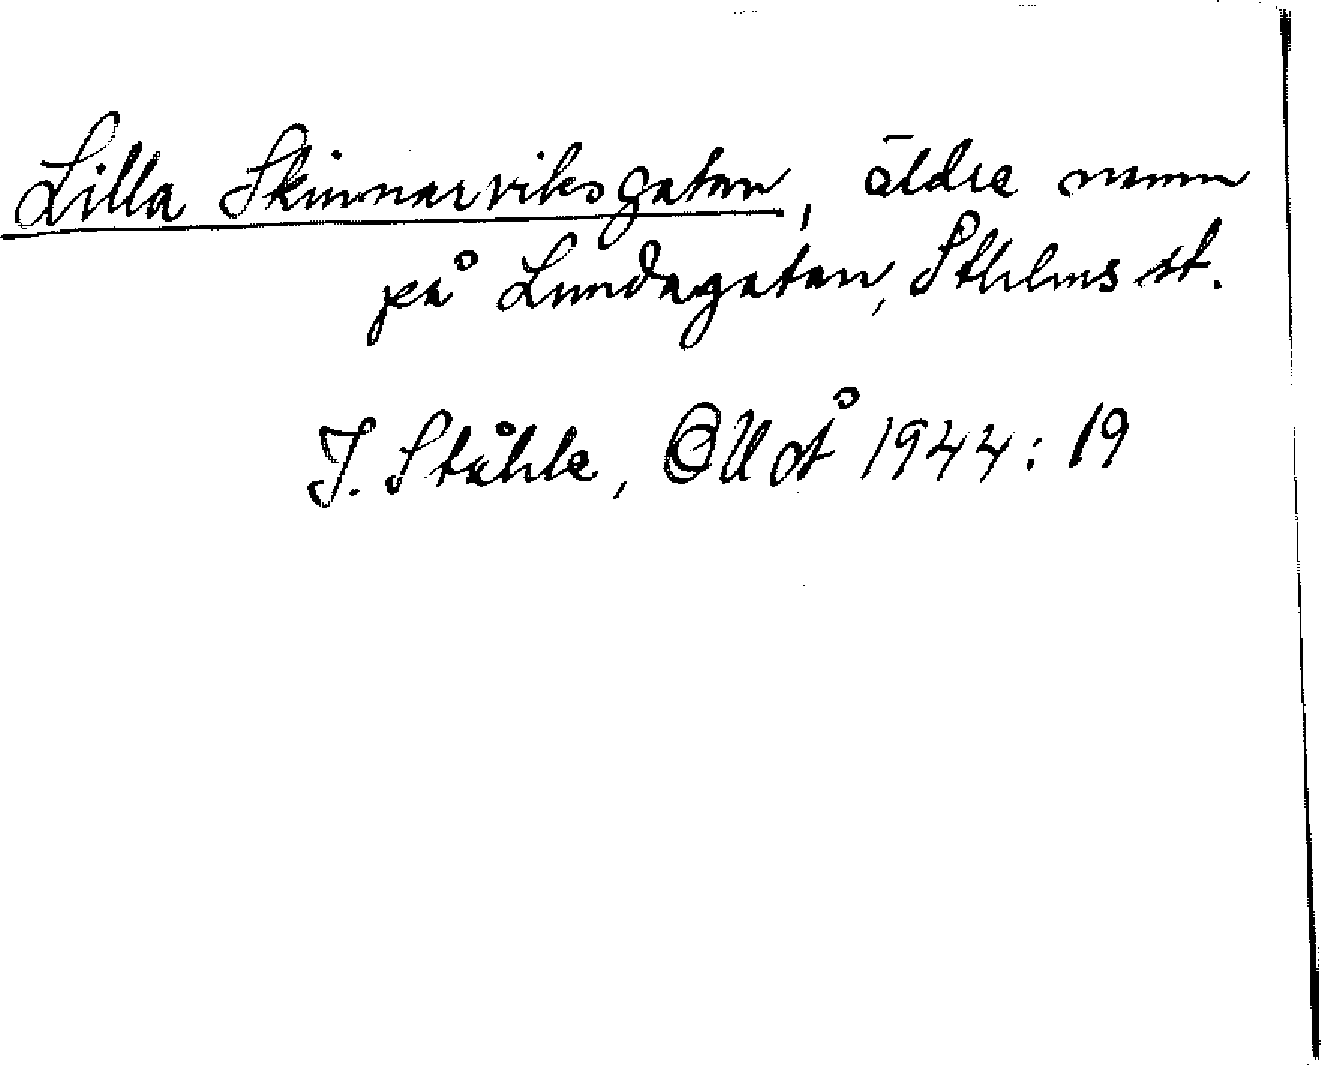 Lilla Skinnarviksgatan, äldre namn
på Lundagatan, Sthlms st.
I. Ståhle, OUoÅ 1944:19